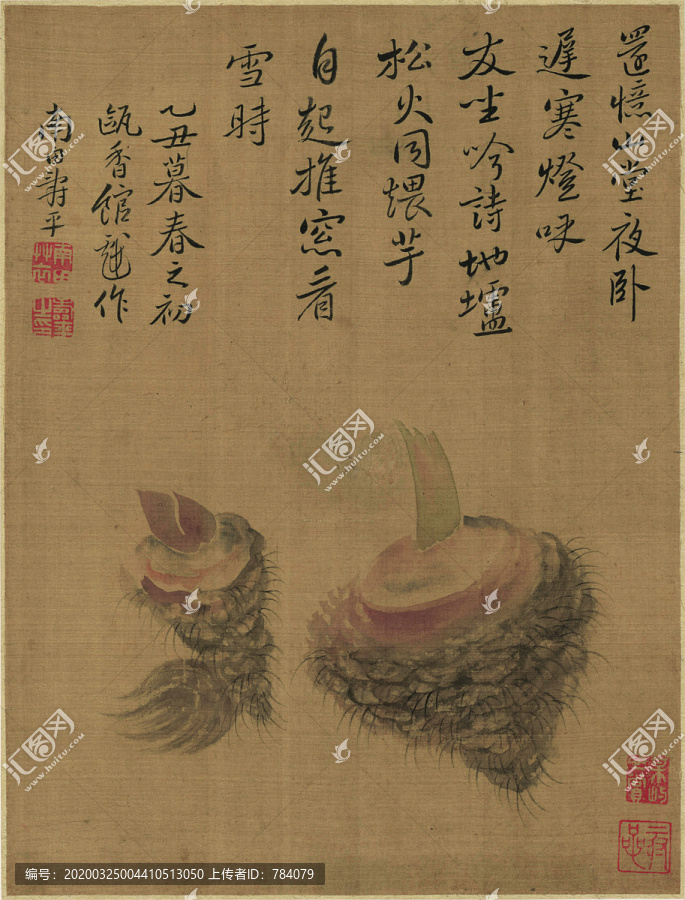 還憶山堂夜卧
遲寒燈呼
友坐吟詩地壚
松火同煨芋
自起推窓看
雪時
乙丑暮春之初
甌香館作
南田壽平
汇图网
www.huitu.com
编号：20200325004410513050 上传者ID：784079